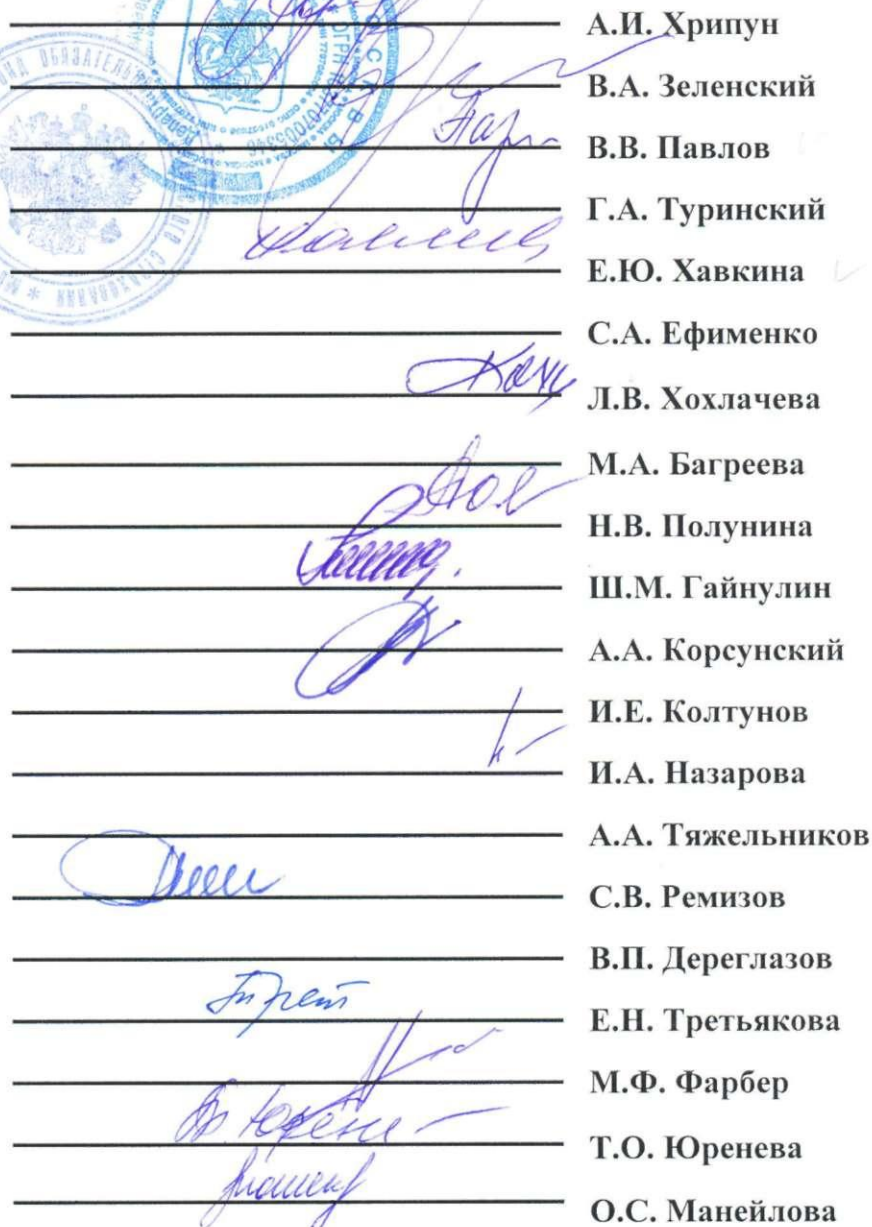 А.И. Хрипун
В.А. Зеленский
В.В. Павлов
Г.А. Туринский
Е.Ю. Хавкина
С.А. Ефименко
Л.В. Хохлачева
М.А. Багреева
Н.В. Полунина
Ш.М. Гайнулин
А.А. Корсунский
И.Е. Колтунов
И.А. Назарова
А.А. Тяжельников
С.В. Ремизов
В.П. Дереглазов
Е.Н. Третьякова
М.Ф. Фарбер
Т.О. Юренева
О.С. Манейлова